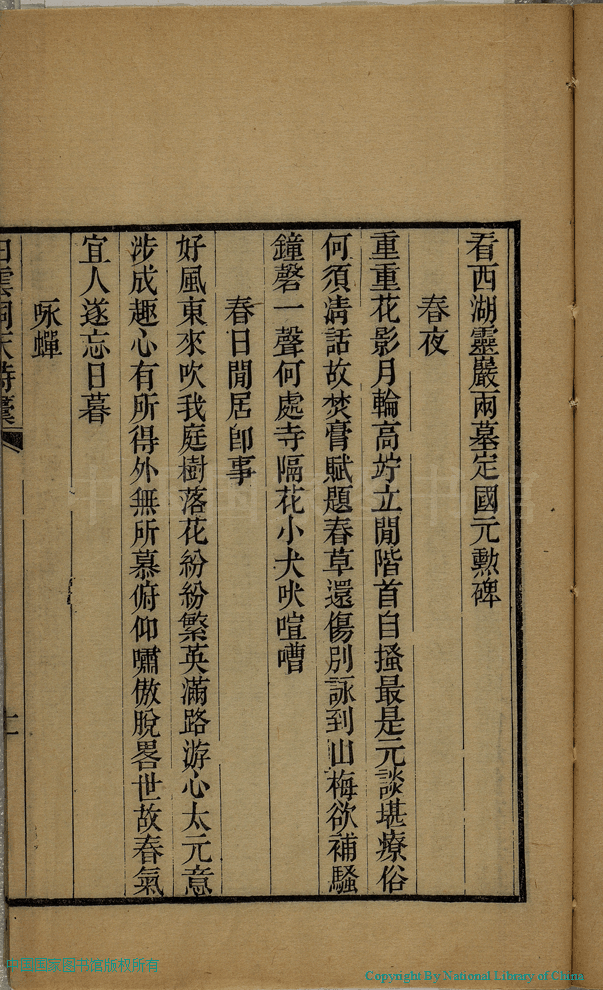 看西湖靈巖兩墓定國元勲碑
春夜
重重花影月輪高竚立閒階首自搔最是元談堪療俗
何須淸話故焚膏賦題春草還傷別詠到山梅欲補騷
鐘磬一聲何處寺隔花小犬吠喧嘈
春日閒居卽事
好風東來吹我庭樹落花紛紛繁英滿路游心太元意
涉成趣心有所得外無所慕俯仰嘯傲脫畧世故春氣
宜人遂忘日暮
咏蟬
中国国家图书馆版权所有
Copyright By National Library of China